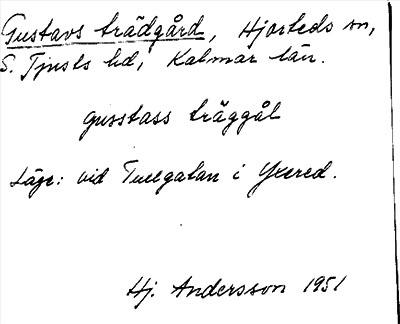 Gustavs trädgård, Hjorteds sn,
S. Tjusts hd, Kalmar län.
gusstass träggål
Läge: vid Turegatan i Yxered.
Hj. Andersson 1951